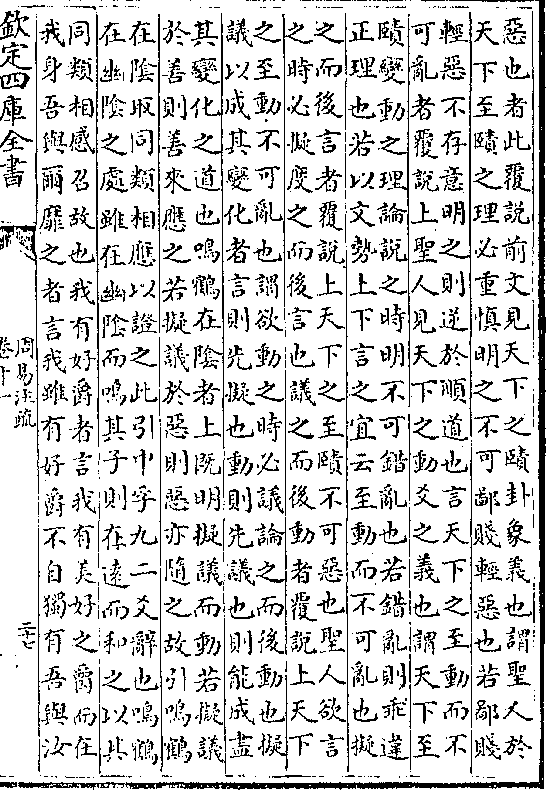 惡也者此覆說前文見天下之賾卦象義也謂聖人於
天下至賾之理必重慎明之不可鄙賤輕惡也若鄙賤
輕惡不存意明之則逆於順道也言天下之至動而不
可亂者覆說上聖人見天下之動爻之義也謂天下至
賾變動之理論說之時明不可錯亂也若錯亂則乖違
正理也若以文勢上下言之宜云至動而不可亂也擬
之而後言者覆說上天下之至賾不可惡也聖人欲言
之時必擬度之而後言也議之而後動者覆說上天下
之至動不可亂也謂欲動之時必議論之而後動也擬
議以成其變化者言則先擬也動則先議也則能成盡
其變化之道也鳴鶴在陰者上既明擬議而動若擬議
於善則善來應之若擬議於惡則惡亦隨之故引鳴鶴
在陰取同類相應以證之此引中孚九二爻辭也鳴鶴
在幽陰之處雖在幽陰而鳴其子則在逺而和之以其
同類相感召故也我有好爵者言我有美好之爵而在
我身吾與爾靡之者言我雖有好爵不自獨有吾與汝
欽定四庫全書
周易注疏
卷十一
二十七